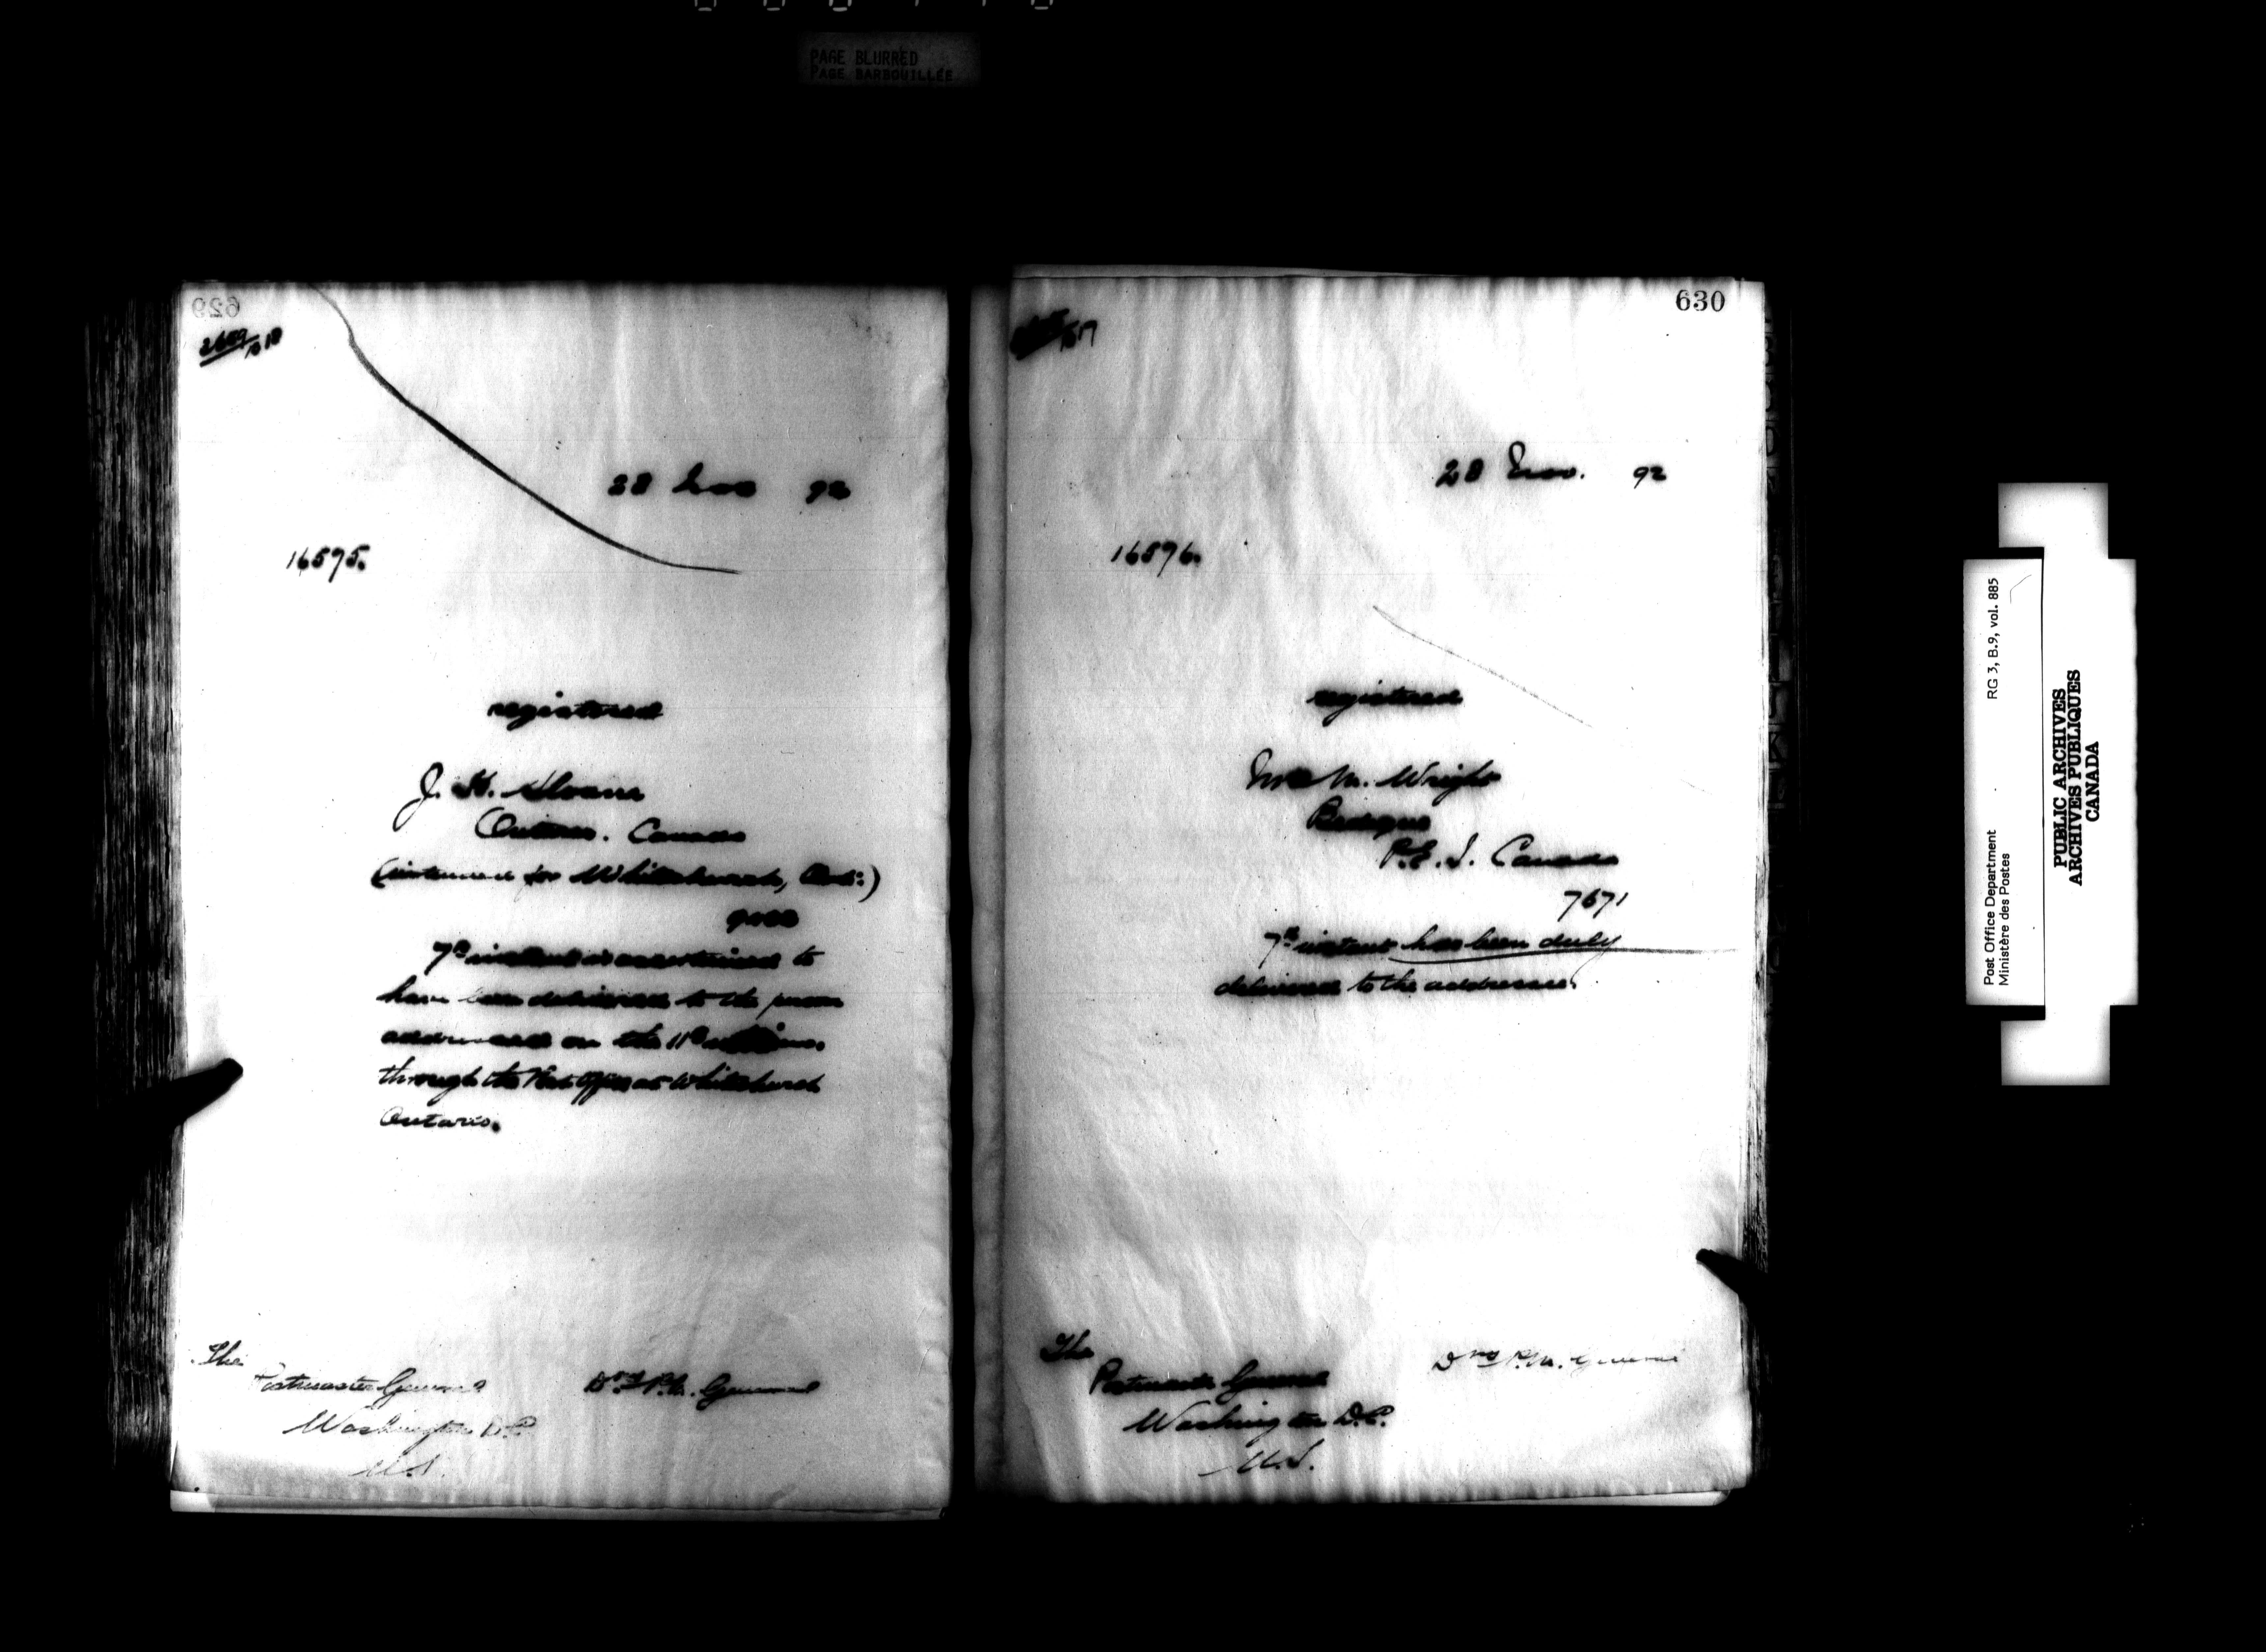 PAGE BLURRED
PAGE BARBOUILLÉE
629
28 Nov 92
16595.
registered
J. H. Sloane
Canada
(intended for Whitechurch, Ont:)
7th instant is ascertained to
have been delivered to the person
addressed on the 11th
through the Post Office at Whitechurch
Ontario.
The
Postmaster General
Washington D.C.
U.S.
P.M. General
630
28 Nov. 92
16596.
registered
M. Wright
Bedeque
P.E.I. Canada
7671
7th instant has been duly
delivered to the addressee.
The
Postmaster General
Washington D.C.
U.S.
P.M. General
Post Office Department RG 3, B.9, vol. 885
Ministère des Postes
PUBLIC ARCHIVES
ARCHIVES PUBLIQUES
CANADA